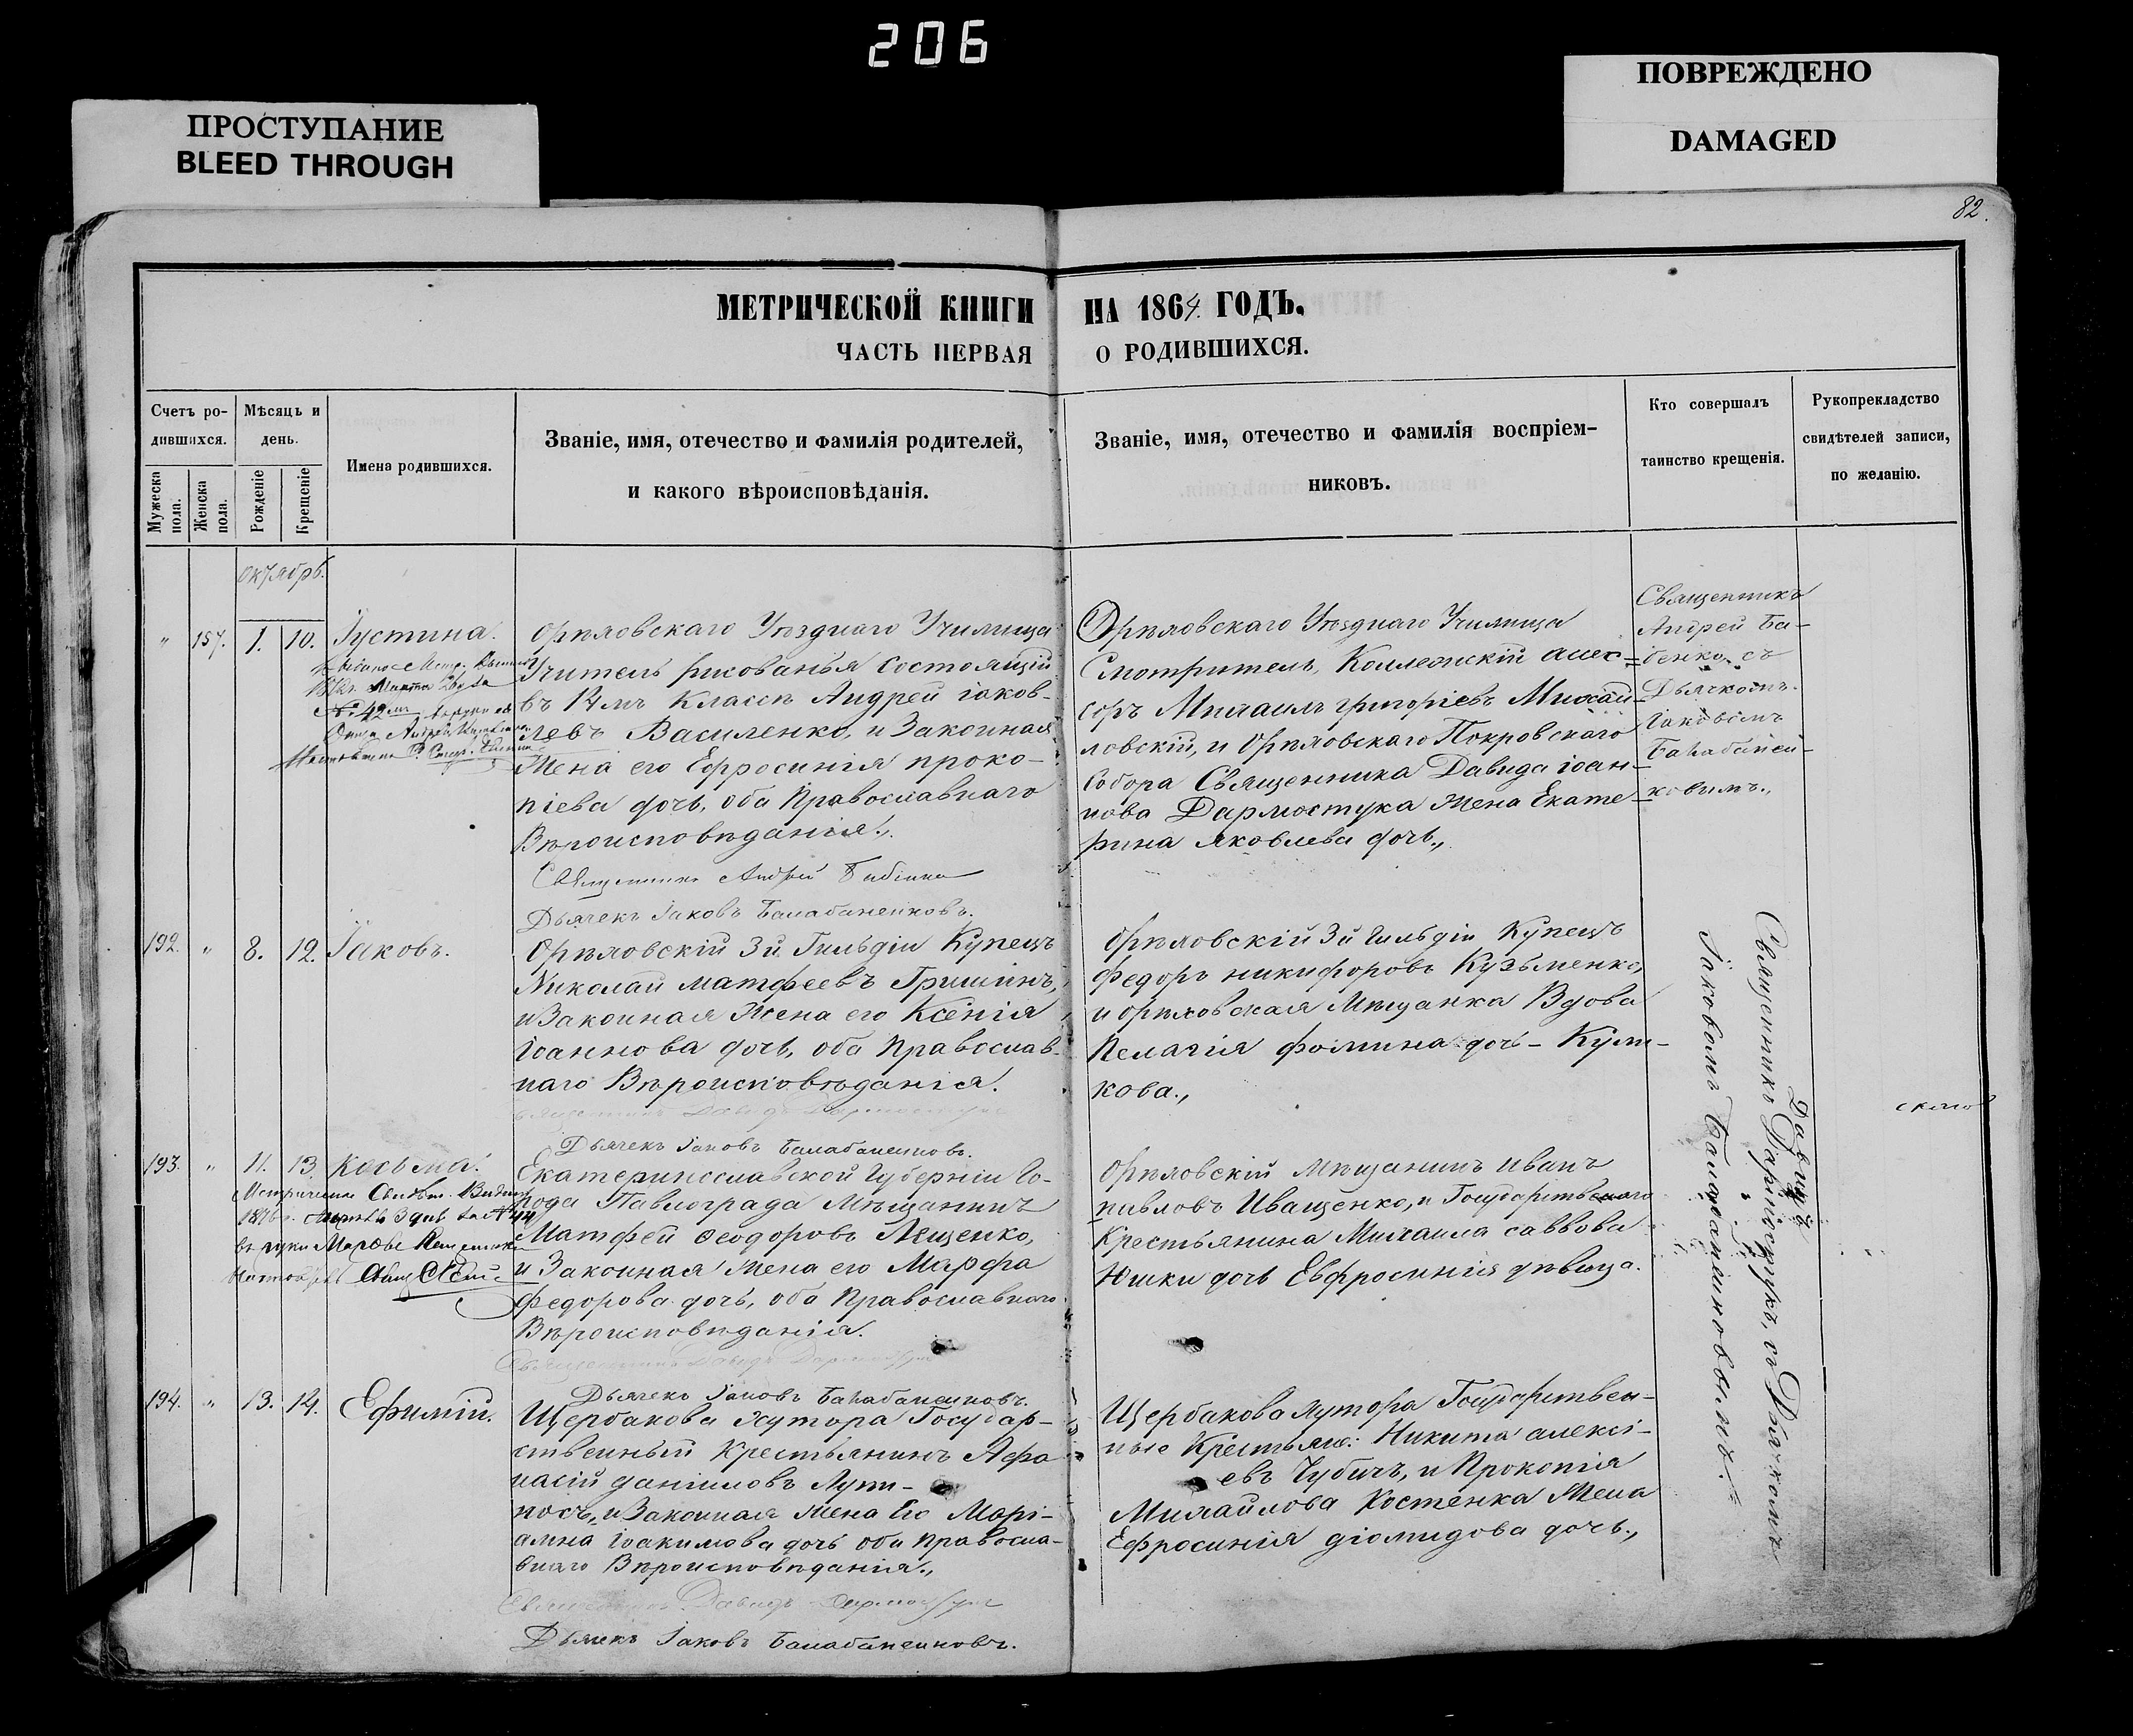 206
ПРОСТУПАНИЕ
BLEED THROUGH
ПОВРЕЖДЕНО
DAMAGED
82.
МЕТРИЧЕСКОЙ КНИГИ НА 1864 ГОДЪ.
ЧАСТЬ ПЕРВАЯ О РОДИВШИХСЯ.
Счетъ ро-
дившихся.
Мужеска пола.
Женска пола.
Мѣсяцъ и
день.
Рожденіе
Крещеніе
Имена родившихся.
Званіе, имя, отечество и фамилія родителей,
и какого вѣроисповѣданія.
Званіе, имя, отечество и фамилія воспріем-
никовъ.
Кто совершалъ
таинство крещенія.
Рукоприкладство
свидѣтелей записи,
по желанію.
октябрь.
" 157. 1. 10. Іустина.
№ 42
Орѣховскаго Уѣзднаго Училища
Учитель рисованья состоящій
въ 14мъ классѣ Андрей іаков-
левъ Василенко, и Законная
Жена его Ефросинія проко-
піева дочь, оба Православнаго
Вѣроисповѣданія.,
Священникъ Андрей Бабенко
Дьячекъ Іаковъ Балабаненковъ.
Орѣховскаго Уѣзднаго Училища
Смотритель, Коллежскій ассес-
соръ Михаилъ григоріевъ Михай-
ловскій, и Орѣховскаго Покровскаго
Собора Священника Давида іоан-
нова Дармостука жена Екате-
рина Яковлева дочь.,
Священникъ
Андрей Ба-
бенко, съ
Дьячкомъ
Іаковомъ
Балабанен-
ковымъ.,
192. " 8. 12. Іаковъ.
Орѣховскій 3й Гильдіи Купецъ
Николай матфеевъ Гришинъ,
и Законная Жена его Ксенія
іоаннова дочь, оба Православ-
наго Вѣроисповѣданія.
Священникъ Давидъ Дармостукъ
Дьячекъ Іаковъ Балабаненковъ.
Орѣховскій 3й гильдіи Купецъ
Федоръ никифоровъ Кузьменко,
и орѣховская Мѣщанка Вдова
Пелагія фомина дочь - Кули-
кова.,
193. " 11. 13. Косьма.
Екатеринославской Губерніи Го-
рода Павлограда Мѣщанинъ
Матфей Феодоровъ Лещенко,
и Законная жена его Марфа
федорова дочь, оба Православнаго
Вѣроисповѣданія.
Священникъ Давидъ Дармостукъ
Дьячекъ Іаковъ Балабаненковъ.
Орѣховскій мѣщанинъ иванъ
павловъ Иващенко, и Государственнаго
Крестьянина Михаила саввова
Юшки дочь Евфросинія дѣвица.
194. " 13. 14. Ефимій.
Щербакова хутора Государ-
ственный Крестьянинъ Афа
насій даніиловъ Лути-
носъ, и Законная жена Его Марі-
амна іоакимова дочь оба православ-
внаго Вѣроисповѣданія.,
Священникъ Давидъ Дармостукъ
Дьячекъ Іаковъ Балабаненковъ.
Щербакова хутора Государствен-
ные Крестьяне: Никита алексі-
евъ Чубичъ, и Прокопія
Михайлова Костенка жена
Ефросинія діомидова дочь.,
Священникъ Давидъ
Дармостукъ, съ Дьячкомъ
Іаковомъ Балабаненковымъ.